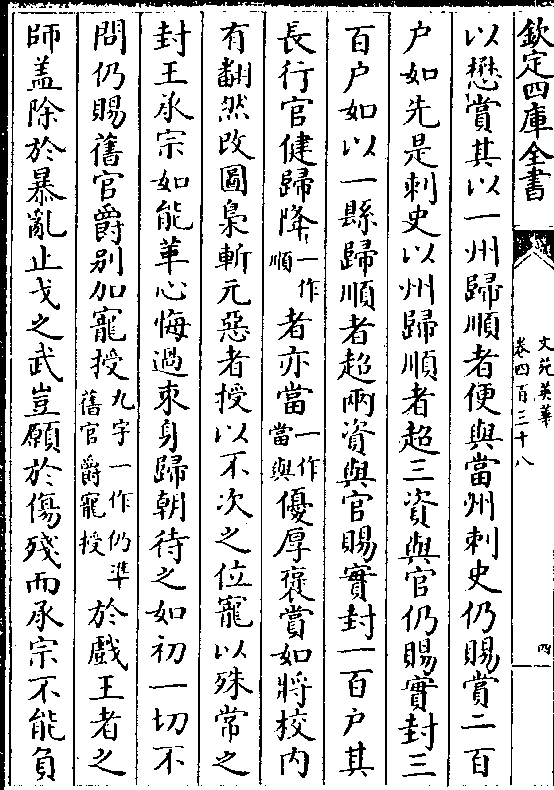 欽定四庫全書
文苑英華
卷四百三十八
四
以懋賞其以一州歸順者便與當州刺史仍賜賞二百
户如先是刺史以州歸順者超三資與官仍賜實封三
百户如以一縣歸順者超兩資與官賜實封一百户其
長行官健歸降一作順者亦當一作當與優厚褒賞如將校内
有翻然改圖梟斬元惡者授以不次之位寵以殊常之
封王承宗如能革心悔過束身歸朝待之如初一切不
問仍賜舊官爵别加寵授九字一作仍準舊官爵寵授於戲王者之
師盖除於暴亂止戈之武豈願於傷殘而承宗不能負